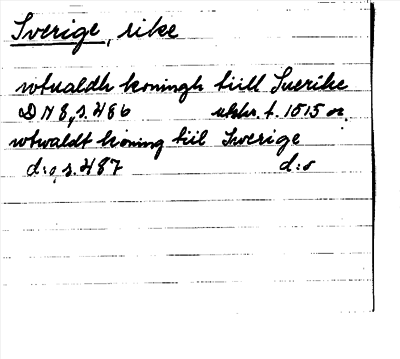 Sverige, rike
wtualdh koningh tiill Suerike
DN 8, s. 486 utskr. f. 1515 or.
wtwaldt koning tiil Swerige
d:o, s. 487 d:o